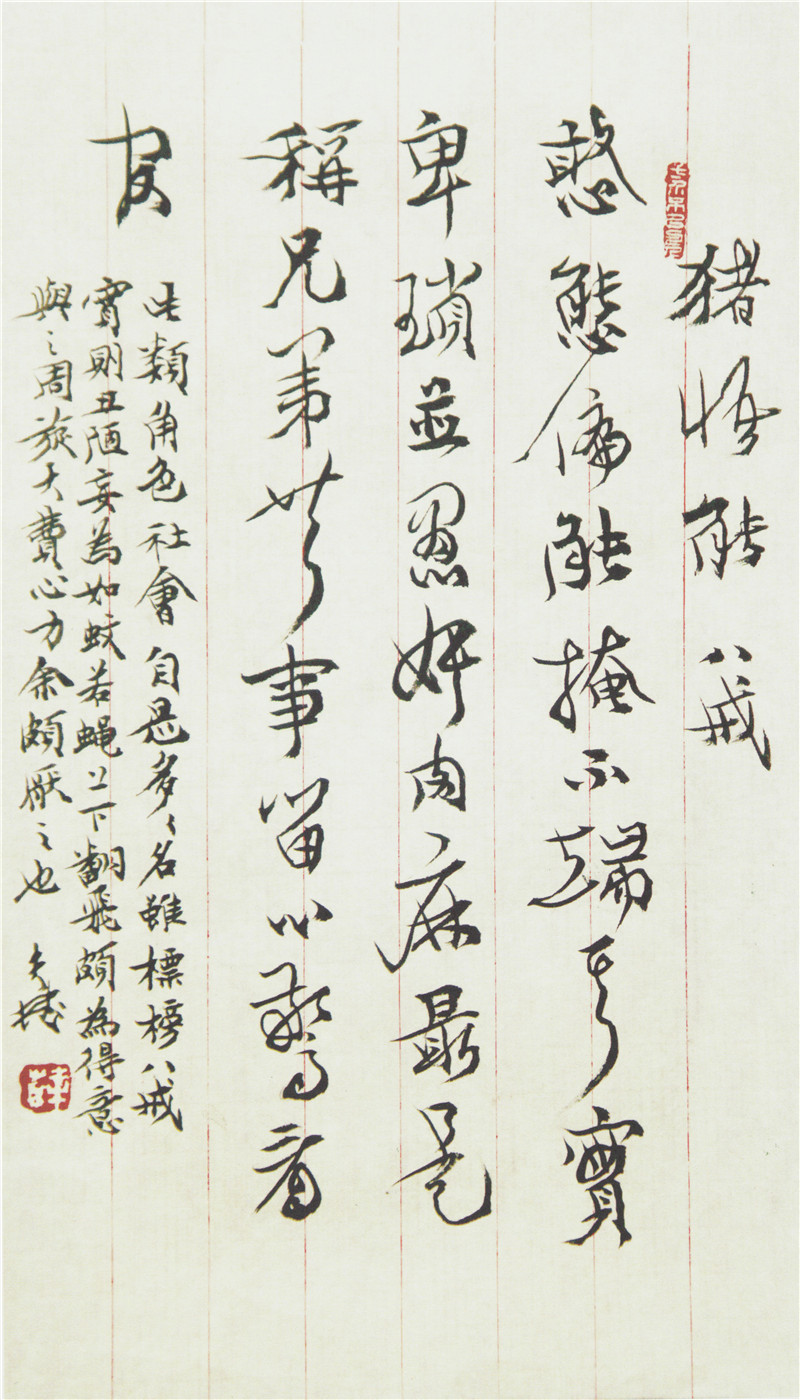 猪悟能 八戒
憨態偏能掩不端其實
卑瑣並愚奸肉麻最是
稱兄弟萬事留心看
官
此類角色社會自是多多名雖標榜八戒
實則丑陋妄為如蚊若蠅上下翻飛頗為得意
與之周旋大費心力余頗厭之也